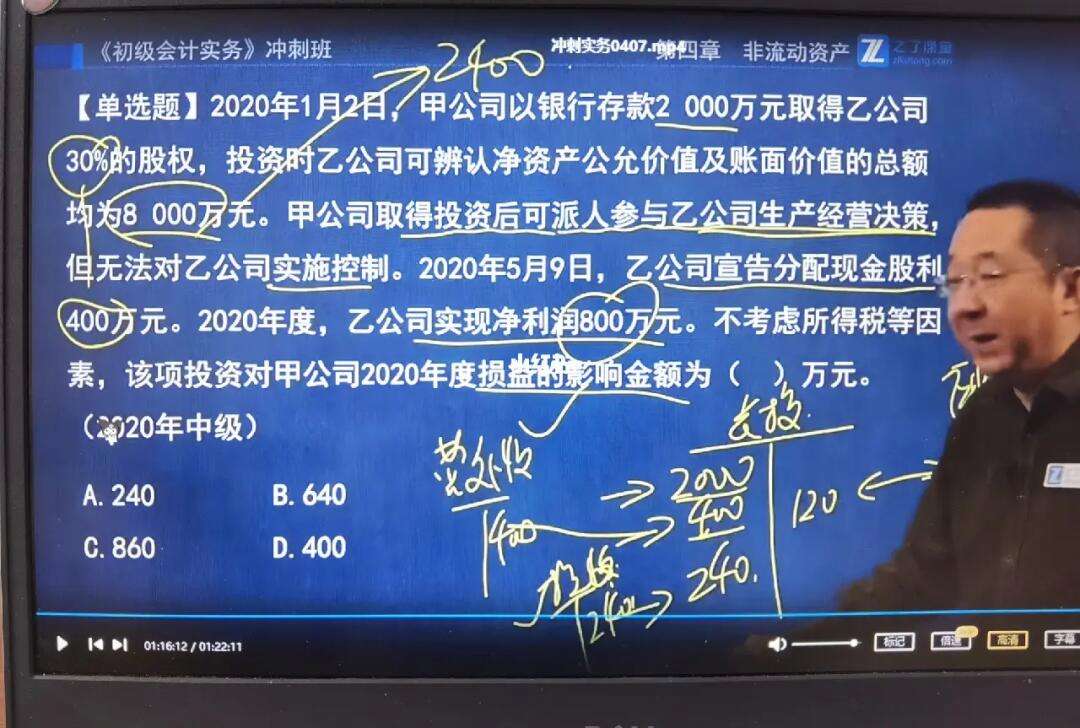 《初级会计实务》冲刺班
冲刺实务0407.mp4
第四章 非流动资产
之了课堂
2400
【单选题】2020年1月2日，甲公司以银行存款2 000万元取得乙公司
30%的股权，投资时乙公司可辨认净资产公允价值及账面价值的总额
均为8 000万元。甲公司取得投资后可派人参与乙公司生产经营决策，
但无法对乙公司实施控制。2020年5月9日，乙公司宣告分配现金股利
400万元。2020年度，乙公司实现净利润800万元。不考虑所得税等因
素，该项投资对甲公司2020年度损益的影响金额为（ ）万元。
（2020年中级）
A. 240 B. 640
C. 860 D. 400
营外收
400
长投
2000
400
240.
120
投收
240
01:16:12 / 01:22:11
标记 倍速 高清 字幕